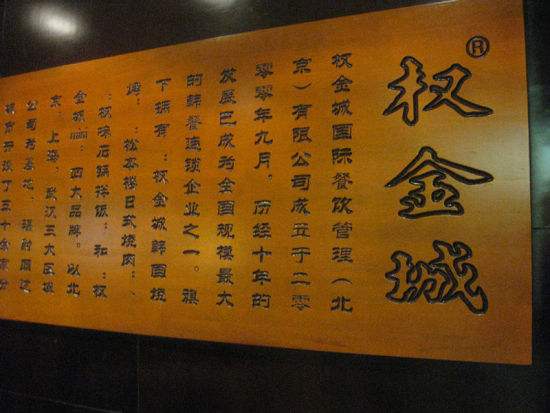 权金城®
权金城国际餐饮管理（北
京）有限公司成立于二零
零零年九月。历经十年的
发展已成为全国规模最大
的韩餐连锁企业之一。旗
下拥有：权金城韩国烧
烤、松本楼日式烧肉、
权味石锅拌饭、和权
金城 四大品牌。以北
京、上海、武汉三大区域
公司为基地，辐射周边
城市开设了三十余家分